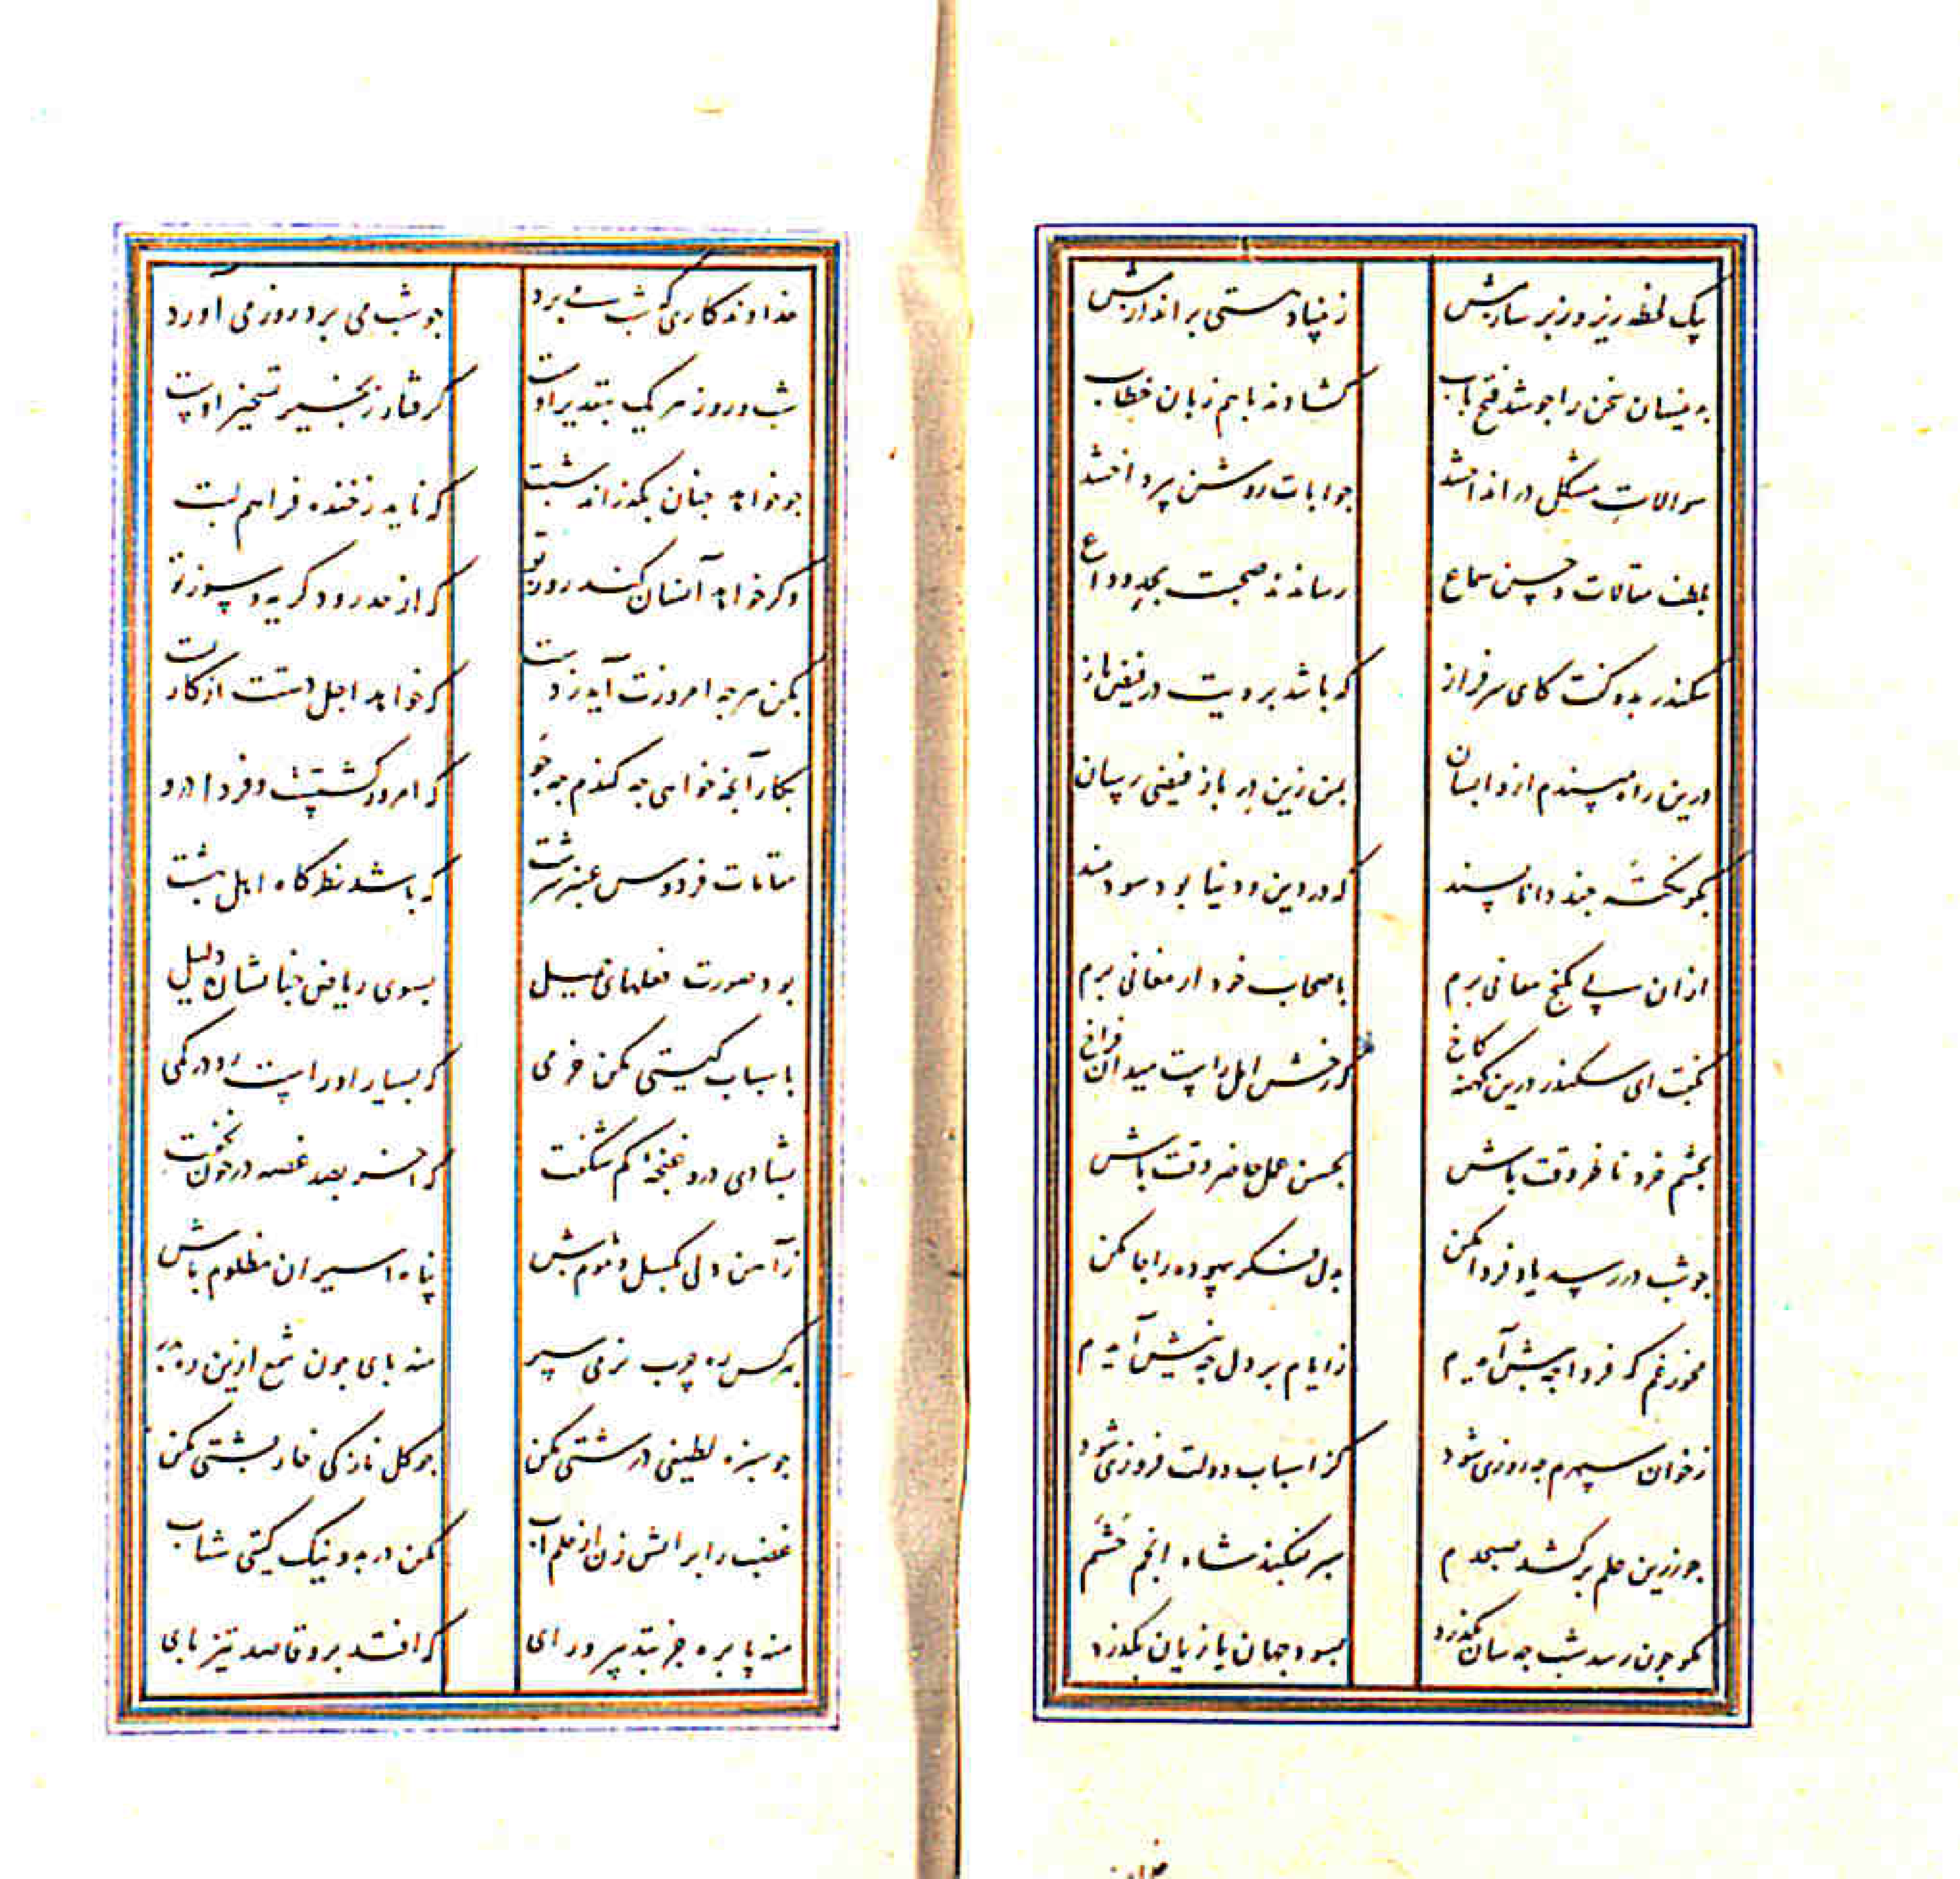 بیک لحظه زیر و زبر سازیش ز بنیاد هستی براندازیش
بدینسان سخن را چو شد فتح باب کشادند با هم زبان خطاب
سوالات مشکل در انداختند جوابات روشن بپرداختند
بلطف مقالات و حسن سماع رساندند صحبت بحد وداع
سکندر بدو گفت کای سرفراز که باشد برویت در فیض باز
درین راه پسندم از واپسان بمن زین در باز فیضی رسان
بگو نکته چند دانا پسند که در دین و دنیا بود سودمند
ازان سان پی گنج معانی برم باصحاب خود ارمغانی برم
بگفت ای سکندر درین کهنه کاخ که رخش امل راست میدان فراخ
بچشم خرد ناظر وقت باش بحسن عمل حاضر وقت باش
چو شب در رسد یاد فردا مکن بدل فکر بیهوده را جا مکن
مخور غم که فردا چه پیش آیدم ز ایام بر دل چه نیش آیدم
ز خوان سپهرم چه روزی شود کز اسباب دولت فروزی شود
چو زرین علم برکشد صبحدم سر بفکند شاه انجم حشم
مگو چون رسد شب چه سان بگذرد بسود جهان یا زیان بگذرد
خداوند کاری که شب می برد چو شب می برد روز می آورد
شب و روز هر یک بتقدیر اوست گرفتار زنجیر تسخیر اوست
چو خواهد چنان بگذراند شبت که ناید ز خنده فراهم لبت
وگر خواهد آنسان کند روز تو که از حد رود گریه و سوز تو
بکن هر چه امروزت آید ز دست که خواهد اجل دستت از کار بست
بکار آنچه خواهی چه گندم چه جو که امروز کشتست و فردا درو
مقامات فردوس عنبر سرشت که باشد نظرگاه اهل بهشت
بود صورت فعلهای جمیل بسوی ریاض جنانشان دلیل
باسباب گیتی مکن خرمی که بسیار او راست رو در کمی
بشادی درو غنچه کم شکفت که آخر نه بصد غصه در خون نخفت
ز آهن دلی بگسل و موم باش پناه اسیران مظلوم باش
بهر کس ره چرب نرمی سپر منه پای چون شمع ازین ره بدر
چو سبزه لطیفی درشتی مکن چو گل نازکی خار پشتی مکن
غضب را بر آتش زن از حلم آب مکن در بد و نیک گیتی شتاب
منه پا بره جز بتدبیر و رای که افتد برو قاصد تیز پای